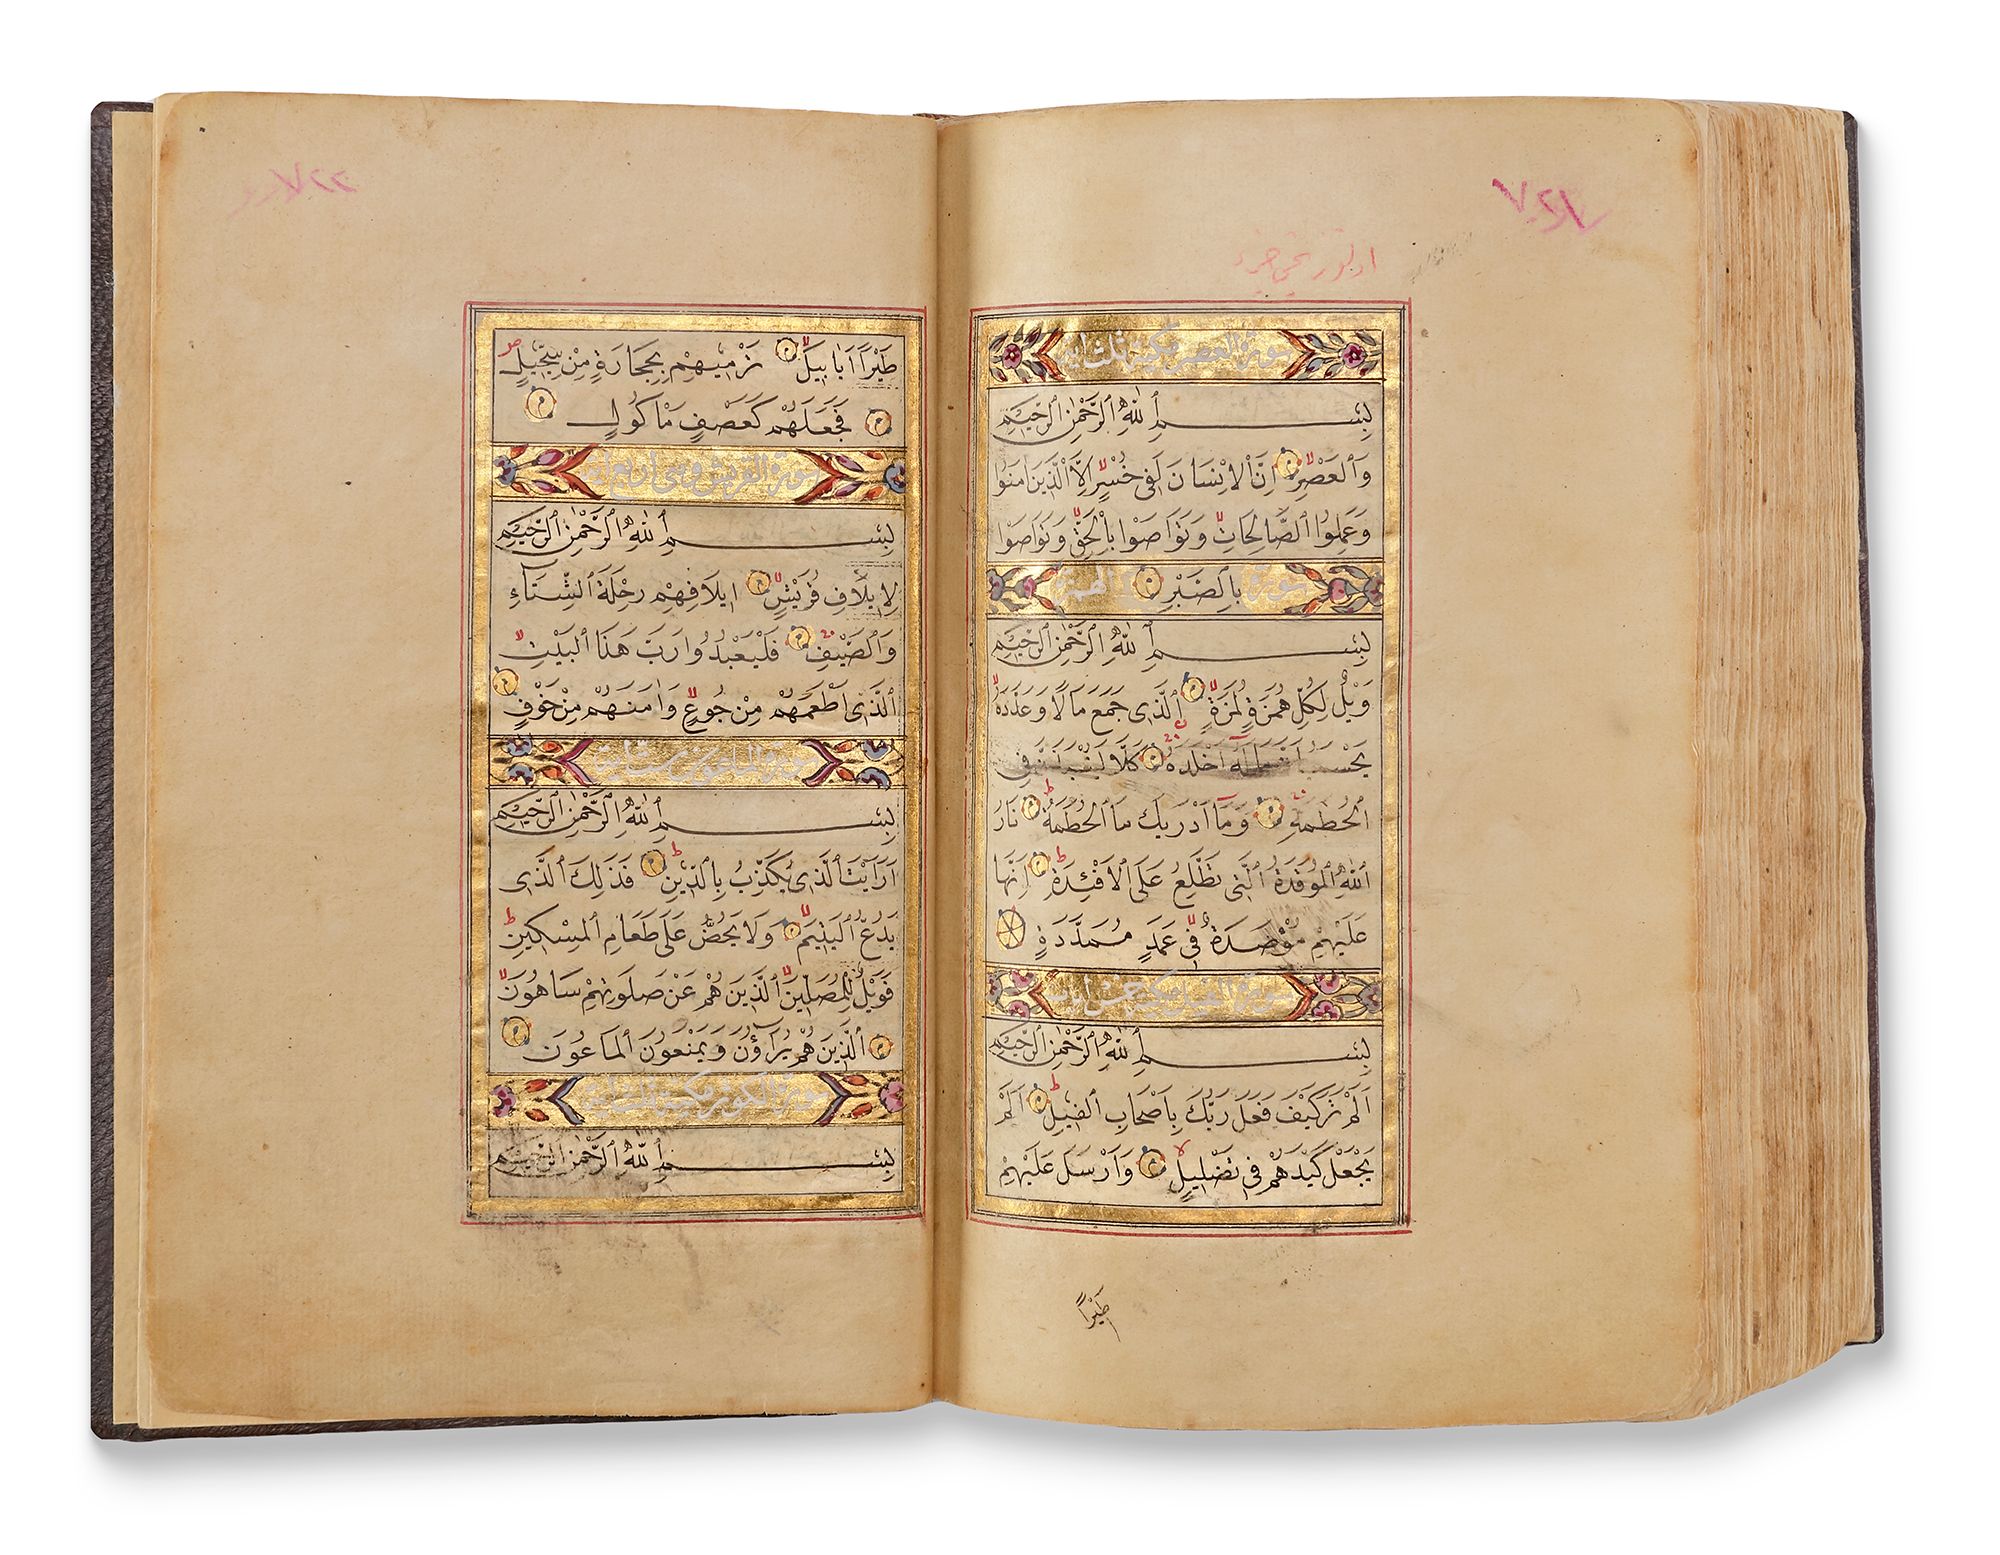 ٧٢٧
اوتوزنجى جزء
سورة العصر مكية ثلث آيات
بِسْمِ اللّٰهِ الرَّحْمٰنِ الرَّحِيمِ
وَالْعَصْرِ اِنَّ الْاِنْسَانَ لَفِى خُسْرٍ اِلَّا الَّذِينَ اٰمَنُوا
وَعَمِلُوا الصَّالِحَاتِ وَتَوَاصَوْا بِالْحَقِّ وَتَوَاصَوْا
سورة بِالصَّبْرِ الهمزة
بِسْمِ اللّٰهِ الرَّحْمٰنِ الرَّحِيمِ
وَيْلٌ لِكُلِّ هُمَزَةٍ لُمَزَةٍ الَّذِى جَمَعَ مَالًا وَعَدَّدَهُ
يَحْسَبُ اَنَّ مَالَهُ اَخْلَدَهُ كَلَّا لَيُنْبَذَنَّ فِى
الْحُطَمَةِ وَمَا اَدْرٰيكَ مَا الْحُطَمَةُ نَارُ
اللّٰهِ الْمُوقَدَةُ الَّتِى تَطَّلِعُ عَلَى الْاَفْئِدَةِ اِنَّهَا
عَلَيْهِمْ مُؤْصَدَةٌ فِى عَمَدٍ مُمَدَّدَةٍ
سورة الفيل مكية خمس آيات
بِسْمِ اللّٰهِ الرَّحْمٰنِ الرَّحِيمِ
اَلَمْ تَرَ كَيْفَ فَعَلَ رَبُّكَ بِاَصْحَابِ الْفِيلِ اَلَمْ
يَجْعَلْ كَيْدَهُمْ فِى تَضْلِيلٍ وَاَرْسَلَ عَلَيْهِمْ
طَيْرًا
طَيْرًا اَبَابِيلَ تَرْمِيهِمْ بِحِجَارَةٍ مِنْ سِجِّيلٍ
فَجَعَلَهُمْ كَعَصْفٍ مَاْكُولٍ
سورة القريش وهى اربع آيات
بِسْمِ اللّٰهِ الرَّحْمٰنِ الرَّحِيمِ
لِاِيلَافِ قُرَيْشٍ اِيلَافِهِمْ رِحْلَةَ الشِّتَاءِ
وَالصَّيْفِ فَلْيَعْبُدُوا رَبَّ هٰذَا الْبَيْتِ
الَّذِى اَطْعَمَهُمْ مِنْ جُوعٍ وَاٰمَنَهُمْ مِنْ خَوْفٍ
سورة الماعون
بِسْمِ اللّٰهِ الرَّحْمٰنِ الرَّحِيمِ
اَرَاَيْتَ الَّذِى يُكَذِّبُ بِالدِّينِ فَذٰلِكَ الَّذِى
يَدُعُّ الْيَتِيمَ وَلَا يَحُضُّ عَلٰى طَعَامِ الْمِسْكِينِ
فَوَيْلٌ لِلْمُصَلِّينَ الَّذِينَ هُمْ عَنْ صَلَوتِهِمْ سَاهُونَ
الَّذِينَ هُمْ يُرَاؤُنَ وَيَمْنَعُونَ الْمَاعُونَ
سورة الكوثر مكية ثلث آيات
بِسْمِ اللّٰهِ الرَّحْمٰنِ الرَّحِيمِ